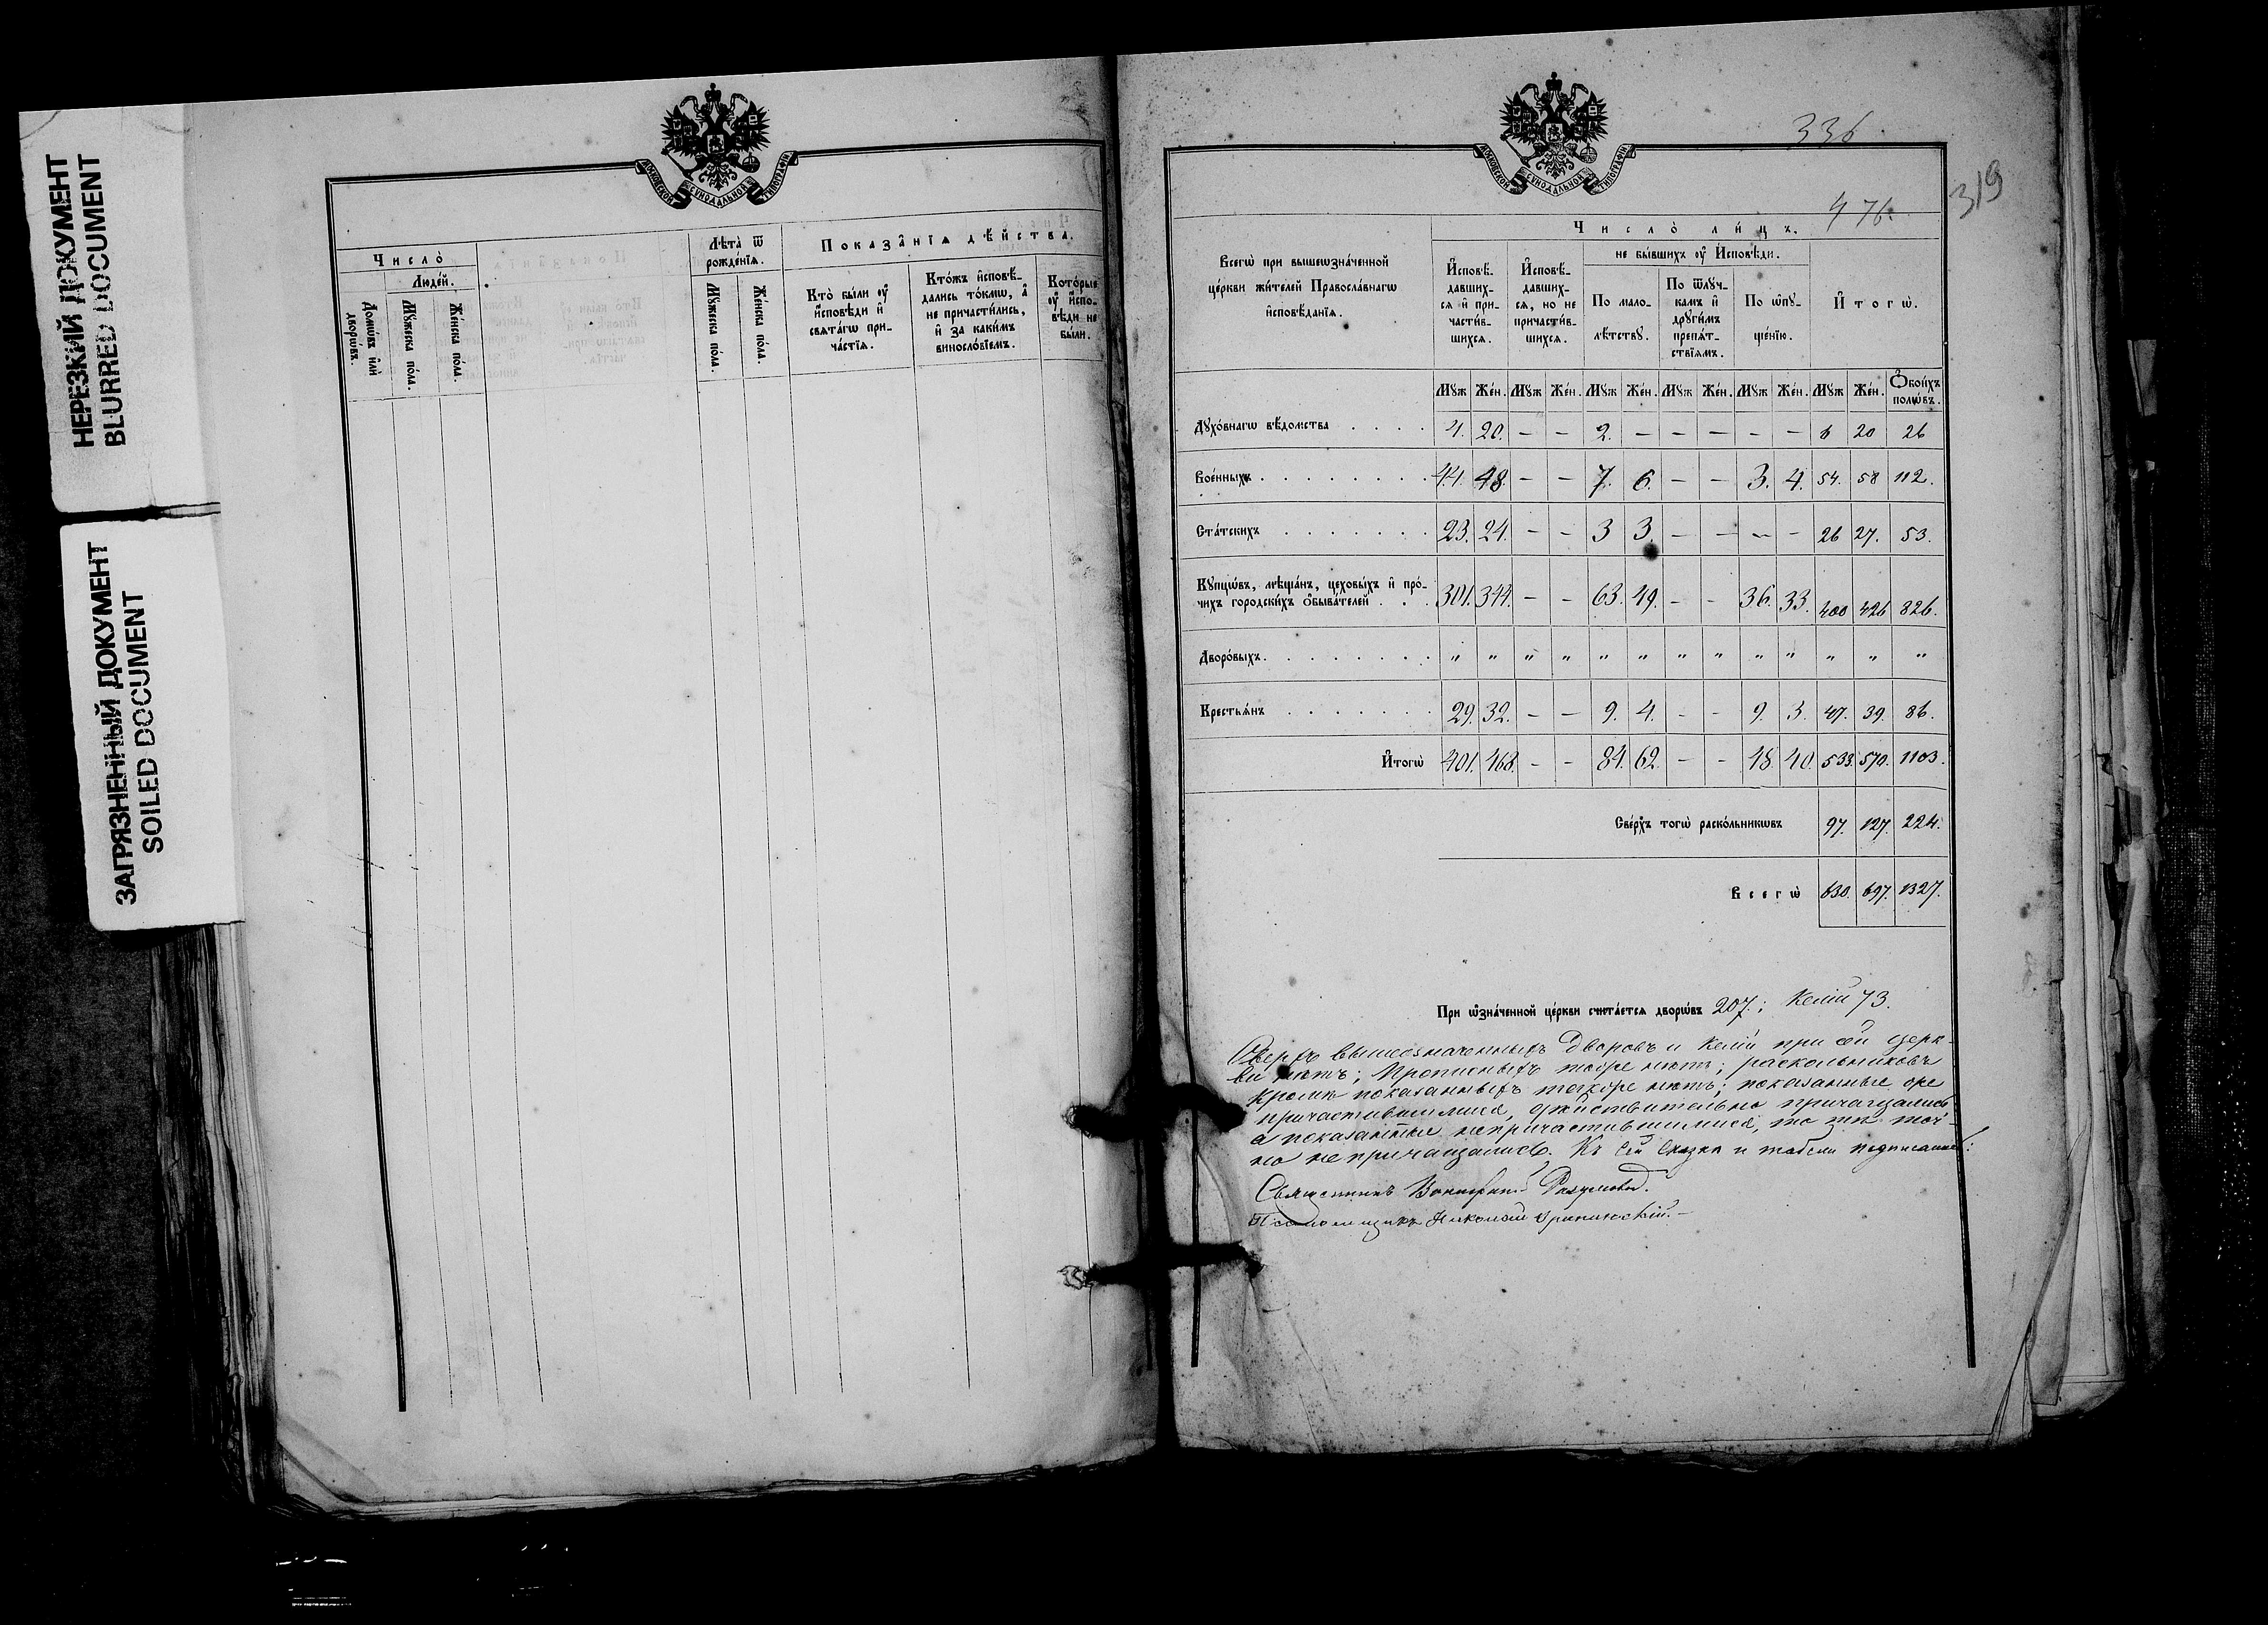 НЕРЕЗКИЙ ДОКУМЕНТ
BLURRED DOCUMENT
ЗАГРЯЗНЕННЫЙ ДОКУМЕНТ
SOILED DOCUMENT
МОСКОВСКОЙ СѴНОДАЛЬНОЙ ТИПОГРАФІИ
Число̀
Людей.
Домѡ́въ и҆лѝ дворѡ́въ.
Мꙋ́жеска по́ла.
Же́нска по́ла.
Лѣ́та ѿ рожде́нїѧ.
Мꙋ́жеска по́ла.
Же́нска по́ла.
Показа̑нїѧ дѣ́йства.
Кто̀ бы́ли ᲂу҆ и҆сповѣди и҆ свѧта́гѡ прича́стїѧ.
Кто́жъ и҆сповѣ́дались то́кмѡ, а҆ не причасти́лись, и҆ за каки́мъ виносло́вїемъ.
Кото́рые ᲂу҆ и҆сповѣди не бы́ли.
МОСКОВСКОЙ СѴНОДАЛЬНОЙ ТИПОГРАФІИ
336
476.
319
Всегѡ̀ при вышеѡзна́ченной це́ркви жи́телей Правосла́внагѡ и҆сповѣ́данїѧ.
Число̀ ли́цъ.
И҆сповѣ́давшихсѧ и҆ причасти́вшихсѧ.
И҆сповѣ́давшихсѧ, но не причасти́вшихсѧ.
не бы́вшихъ ᲂу҆ И҆сповѣди.
По малолѣ́тствꙋ.
По ѿлꙋ́чкамъ и҆ дрꙋги́мъ препѧ́тствїѧмъ.
По ѡ҆пꙋще́нїю.
И҆того̀.
Мꙋж Же́н. Мꙋж Же́н. Мꙋж Же́н. Мꙋж Же́н. Мꙋж Же́н. Мꙋж Же́н. Ѻ҆бои́хъ полѡ́въ.
Дꙋхо́внагѡ вѣ́домства 4. 20. – – 2. – – – – – 6 20 26
Вое́нныхъ 44. 48. – – 7. 6. – – 3. 4. 54. 58 112.
Ста́тскихъ 23. 24. – – 3 3. – – – – 26 27. 53.
Кꙋпцѡ́въ, мѣща́нъ, цеховы́хъ и҆ про́чихъ городски́хъ ѻ҆быва́телей 301. 344. – – 63. 49. – – 36. 33. 400 426 826.
Дворо́выхъ. " " " " " " " " " " " " "
Крестьѧ́нъ 29. 32. – – 9. 4. – – 9. 3. 47. 39. 86.
И҆того̀ 401. 468. – – 84. 62. – – 48 40. 533. 570. 1103.
Све́рхъ тогѡ̀ раско́льникѡвъ 97. 127. 224.
Всегѡ̀ 630. 697. 1327.
При ѡ҆зна́ченной це́ркви счита́етсѧ дворѡ́въ 207.; Келій 73.
Сверхъ вышеозначенныхъ дворовъ и келій при сей церк-
ви нѣтъ; прописныхъ тоже нѣтъ; раскольниковъ
кромѣ показанныхъ также нѣтъ; показанные же
причастившимися, дѣйствительно причащались
а показанные непричастившимися, то тѣ точ-
но не причащались. Къ сей сказкѣ и табели подписались:
Священникъ Разумовъ.
Псаломщикъ Николай